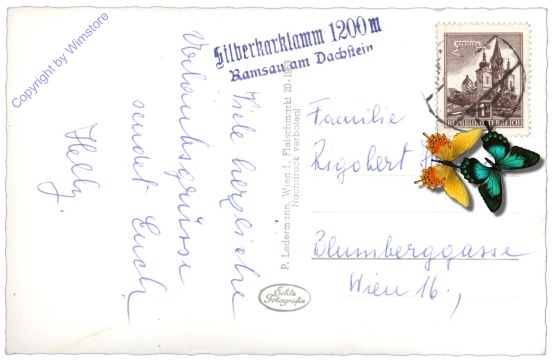 Copyright by Wimstore
Silberkarklamm 1200m
Ramsau am Dachstein
REPUBLIK ÖSTERREICH
Viele herzliche
Urlaubsgrüsse
sendet Euch
Helly.
P. Ledermann, Wien I., Fleischmarkt 20
Nachdruck verboten!
Echte
Fotografie
Familie
Rigobert
Blumberggasse
Wien 16.,